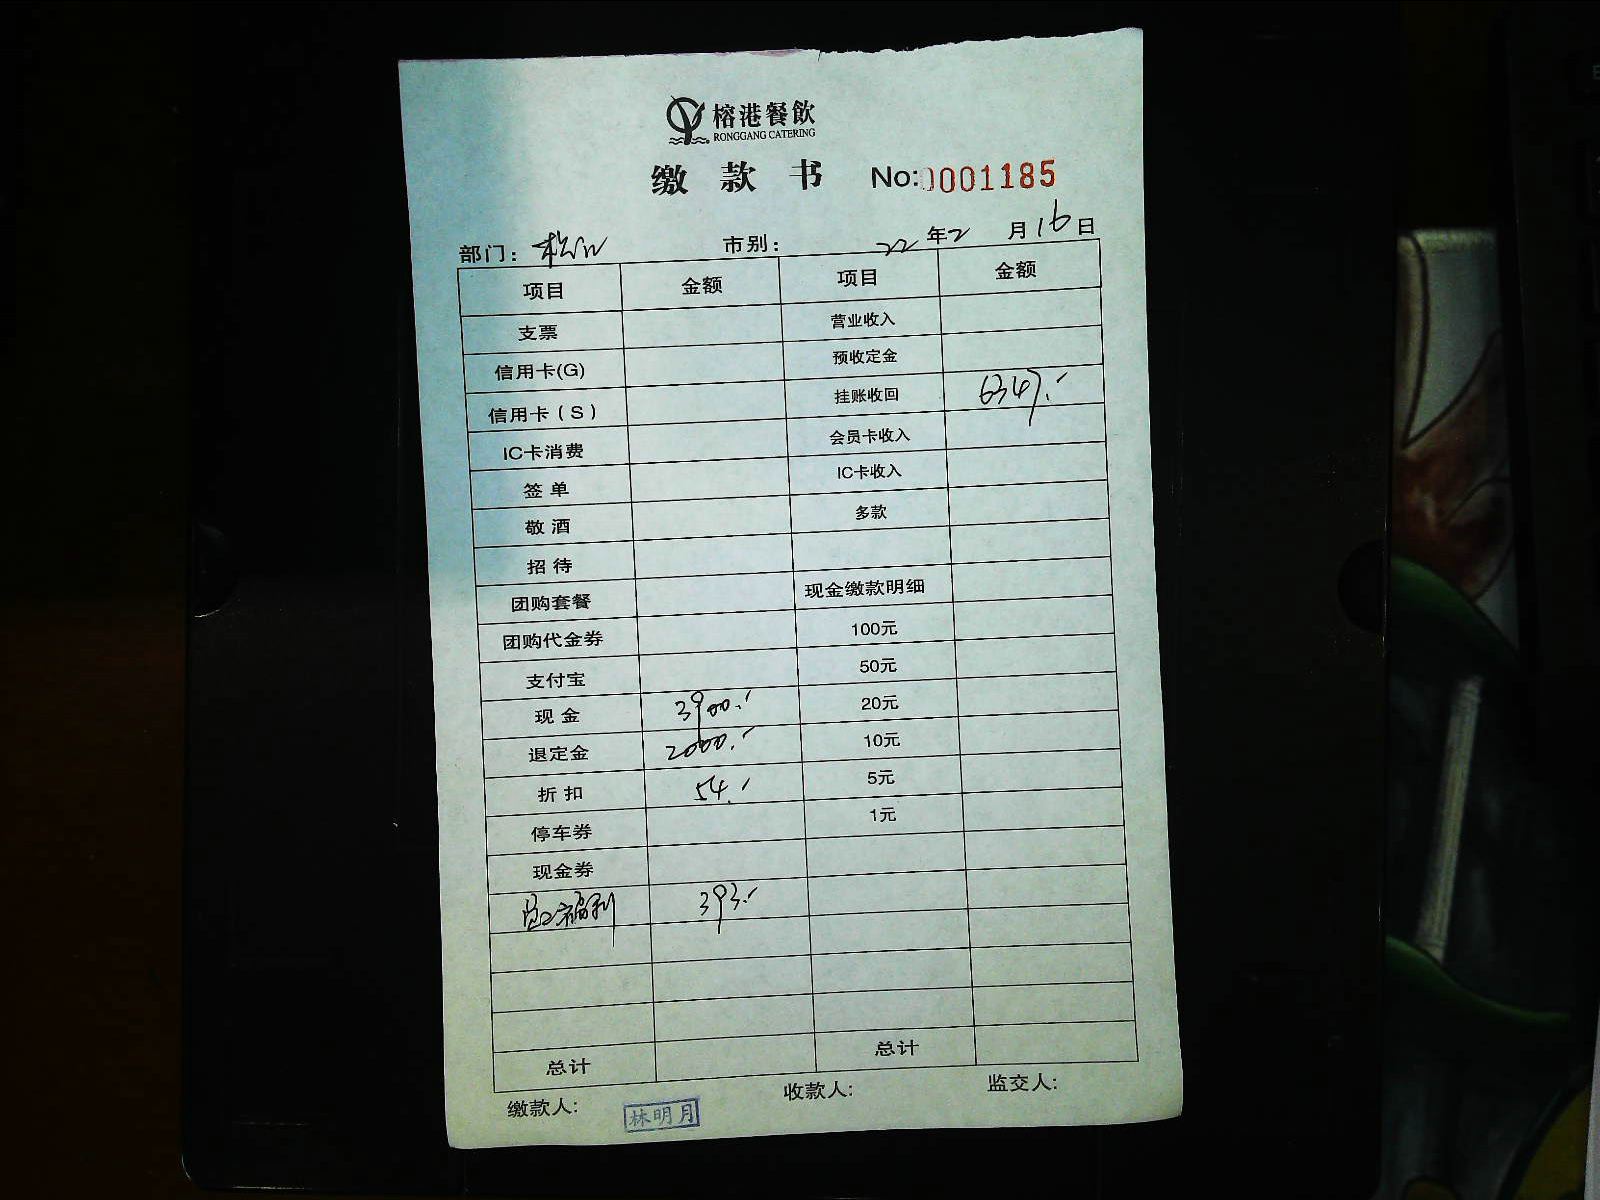 榕港餐飲
RONGGANG CATERING
缴款书 No:0001185
部门: 松江 市别: 22年2月16日
项目 金额 项目 金额
支票 营业收入
信用卡(G) 预收定金
信用卡(S) 挂账收回 6347.-
IC卡消费 会员卡收入
签单 IC卡收入
敬酒 多款
招待
团购套餐 现金缴款明细
团购代金券 100元
支付宝 50元
现金 3900.- 20元
退定金 2000.- 10元
折扣 54.- 5元
停车券 1元
现金券
员工福利 393.-
总计 总计
缴款人: 林明月 收款人: 监交人: